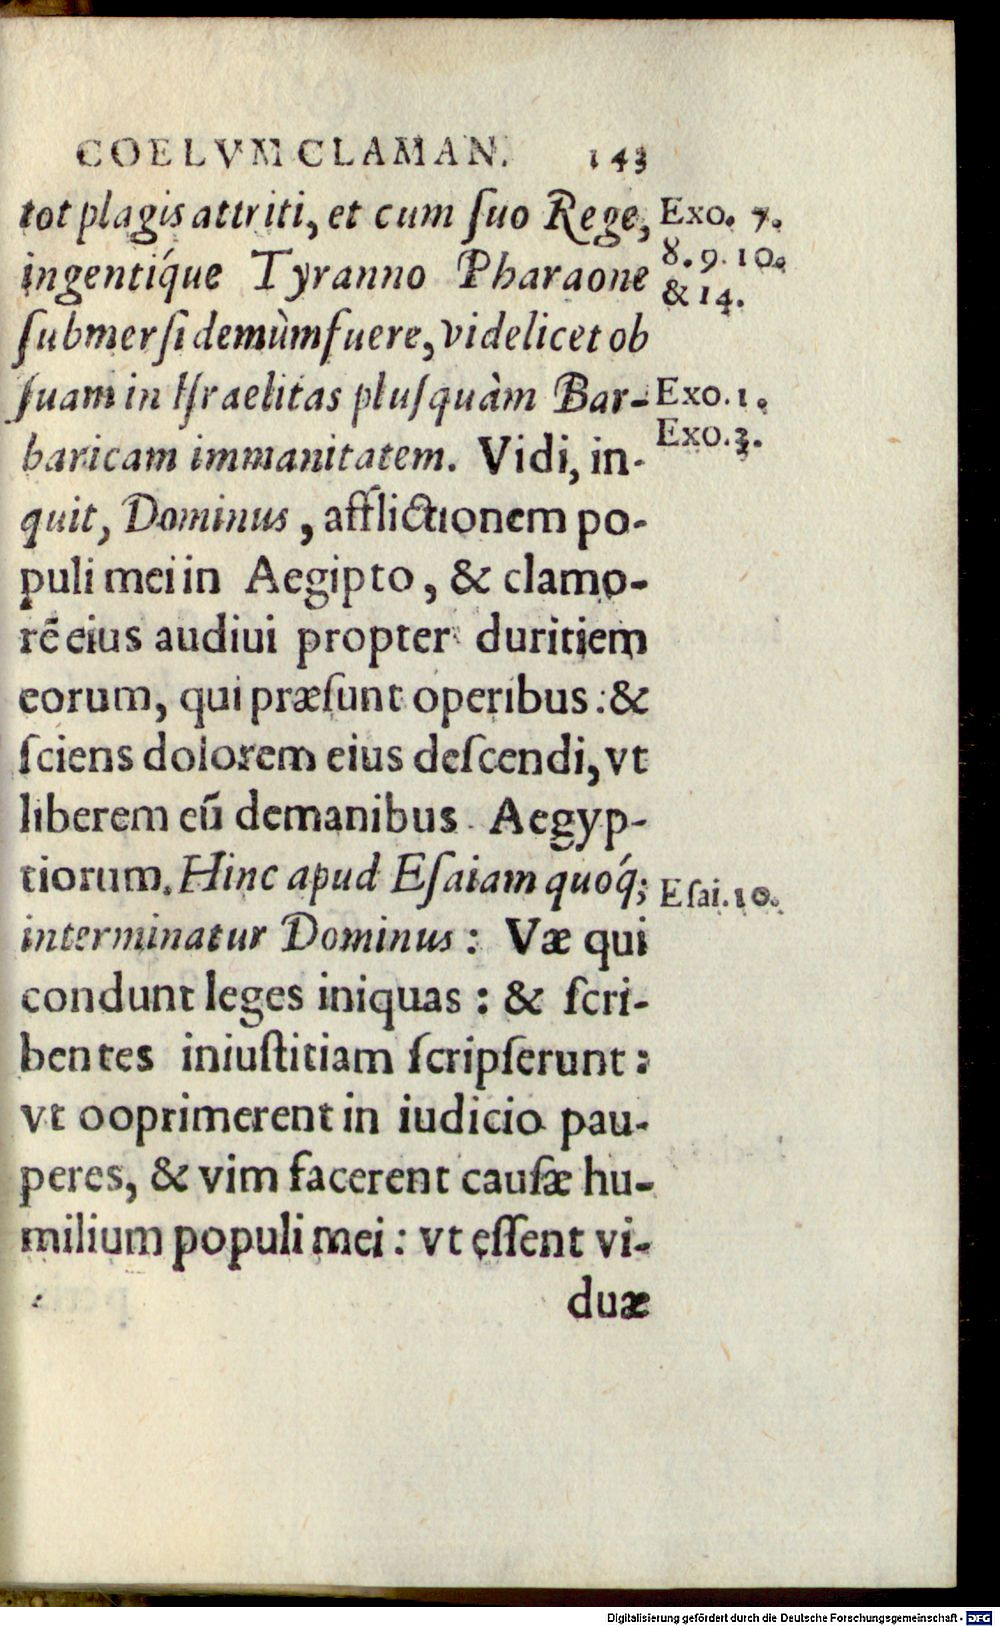 COELVM CLAMAN. 143
tot plagis attriti, et cum ſuo Rege, Exo. 7.
8. 9. 10.
ingentíque Tyranno Pharaone & 14.
ſubmerſi demùm fuere, videlicet ob
ſuam in Iſraelitas pluſquàm Bar- Exo. 1.
Exo. 3.
baricam immanitatem. Vidi, in-
quit, Dominus, afflictionem po-
puli mei in Aegipto, & clamo-
rē eius audiui propter duritiem
eorum, qui præſunt operibus: &
ſciens dolorem eius deſcendi, vt
liberem eū demanibus Aegyp-
tiorum. Hinc apud Eſaiam quoq́; Eſai. 10.
interminatur Dominus: Væ qui
condunt leges iniquas: & ſcri-
bentes iniuſtitiam ſcripſerunt:
vt ooprimerent in iudicio pau-
peres, & vim facerent cauſæ hu-
milium populi mei: vt eſſent vi-
duæ
Digitalisierung gefördert durch die Deutsche Forschungsgemeinschaft - DFG